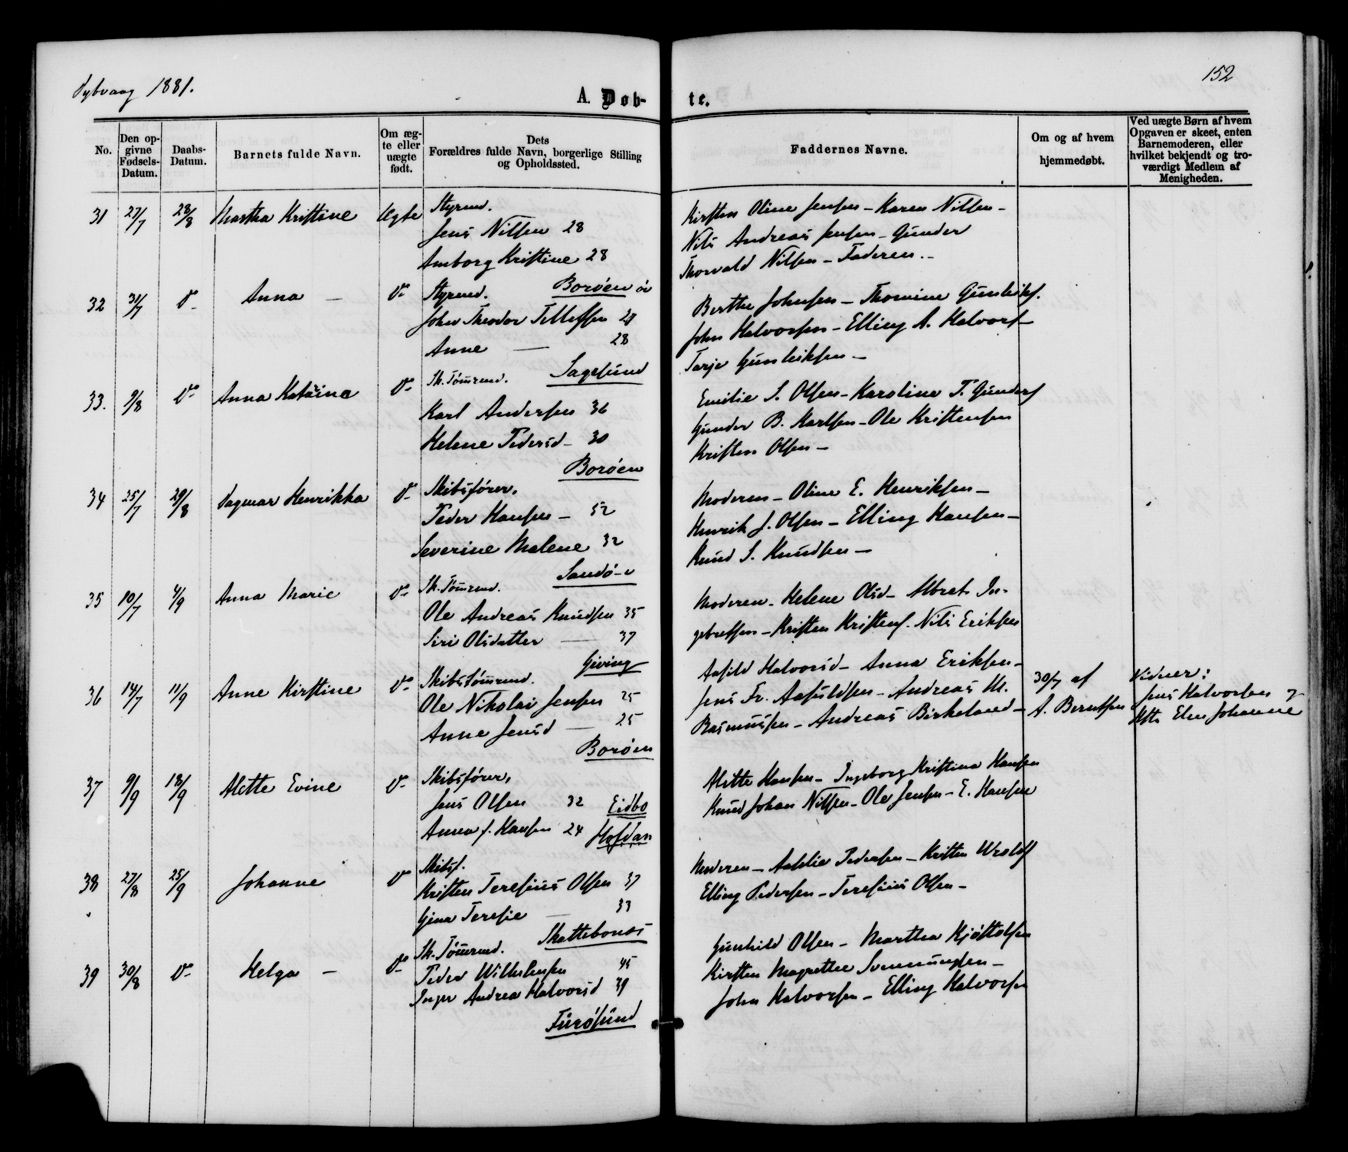 Dybvaag 1881.
152
A. Døb-
te.
No.
Den opgivne Fødsels-Datum.
Daabs-Datum.
Barnets fulde Navn.
Om ægte eller uægte født.
Dets Forældres fulde Navn, borgerlige Stilling og Opholdssted.
Faddernes Navne.
Om og af hvem hjemmedøbt.
Ved uægte Børn af hvem Opgaven er skeet, enten Barnemoderen, eller hvilket bekjendt og troværdigt Medlem af Menigheden.
31 27/7 28/8 Martha Kristine Ægte Styrmd.
Jens Nilsen 28
Amborg Kristine 28
Borøen
Kirsten Oline Jensen - Karen Nilsen -
Nils Andreas Jensen - Gunder
Thorvald Nilsen - Faderen -
32 31/7 do Anna - do Styrmd.
John Theodor Tellefsen 28
Anne - 28
Sagesund
Berthe Johnsen - Thomine Gunleiks.
John Halvorsen - Elling A. Halvors
Tarje Gunleiksen -
33. 9/8 do Anna Katrina do Sk.Tømrmd.
Karl Andersen 36
Helene Pedersd - 30
Borøen
Emilie S. Olsen - Karoline T. Gunders
Gunder B. Karlsen - Ole Kristensen
Kristen Olsen -
34 25/7 28/8 Dagmar Henrikka do Skibsfører,
Peder Hansen - 52
Severine Malene 32
Sandø
Moderen - Oline E. Henriksen -
Henrik J. Olsen - Elling Hansen -
Knud S. Knudsen -
35 10/7 4/9 Anna Marie do Sk.Tømrmd.
Ole Andreas Knudsen 35
Siri Olsdatter - 37
Giving
Moderen - Helene Olsd - Albret In-
gebretsen - Kristen Kristens. Nils Eriksen
36 14/7 11/9 Anne Kirstine do Skibstømrmd.
Ole Nikolai Jensen 25
Anne Jensd - 25
Borøen
Aasild Halvorsd - Anna Eriksen -
Jens Fr. Aasuldsen - Andreas M.
Rasmussen - Andreas Birkeland -
30/7 af
A. Berntsen
Vidner:
Jens Halvorsen og
Elen Johanne
37 9/9 18/9 Mette Evine do Skibsfører,
Jens Olsen 32 Eidbo
Anna J. Hansen 24 Holdan
Mette Hansen - Ingeborg Kristina Hansen
Knud Johan Nilsen - Ole Jensen - E. Hansen
38 27/8 25/9 Johanne do Skibsf.
Kristen Teresius Olsen 37
Gina Teresie - 33
Skottebonæs
Moderen - Aalelia Pedersen - Kristen
Elling Pedersen - Teresius Olsen -
39 30/8 do Helga - do Sk.Tømrmd.
Peder Wilhelmsen 45
Inger Andrea Halvorsd 39
Furøsund
Gunhild Olsen - Martha Kjøstolsen
Kirsten Magrethe Svenningsen -
John Halvorsen - Elling Halvorsen